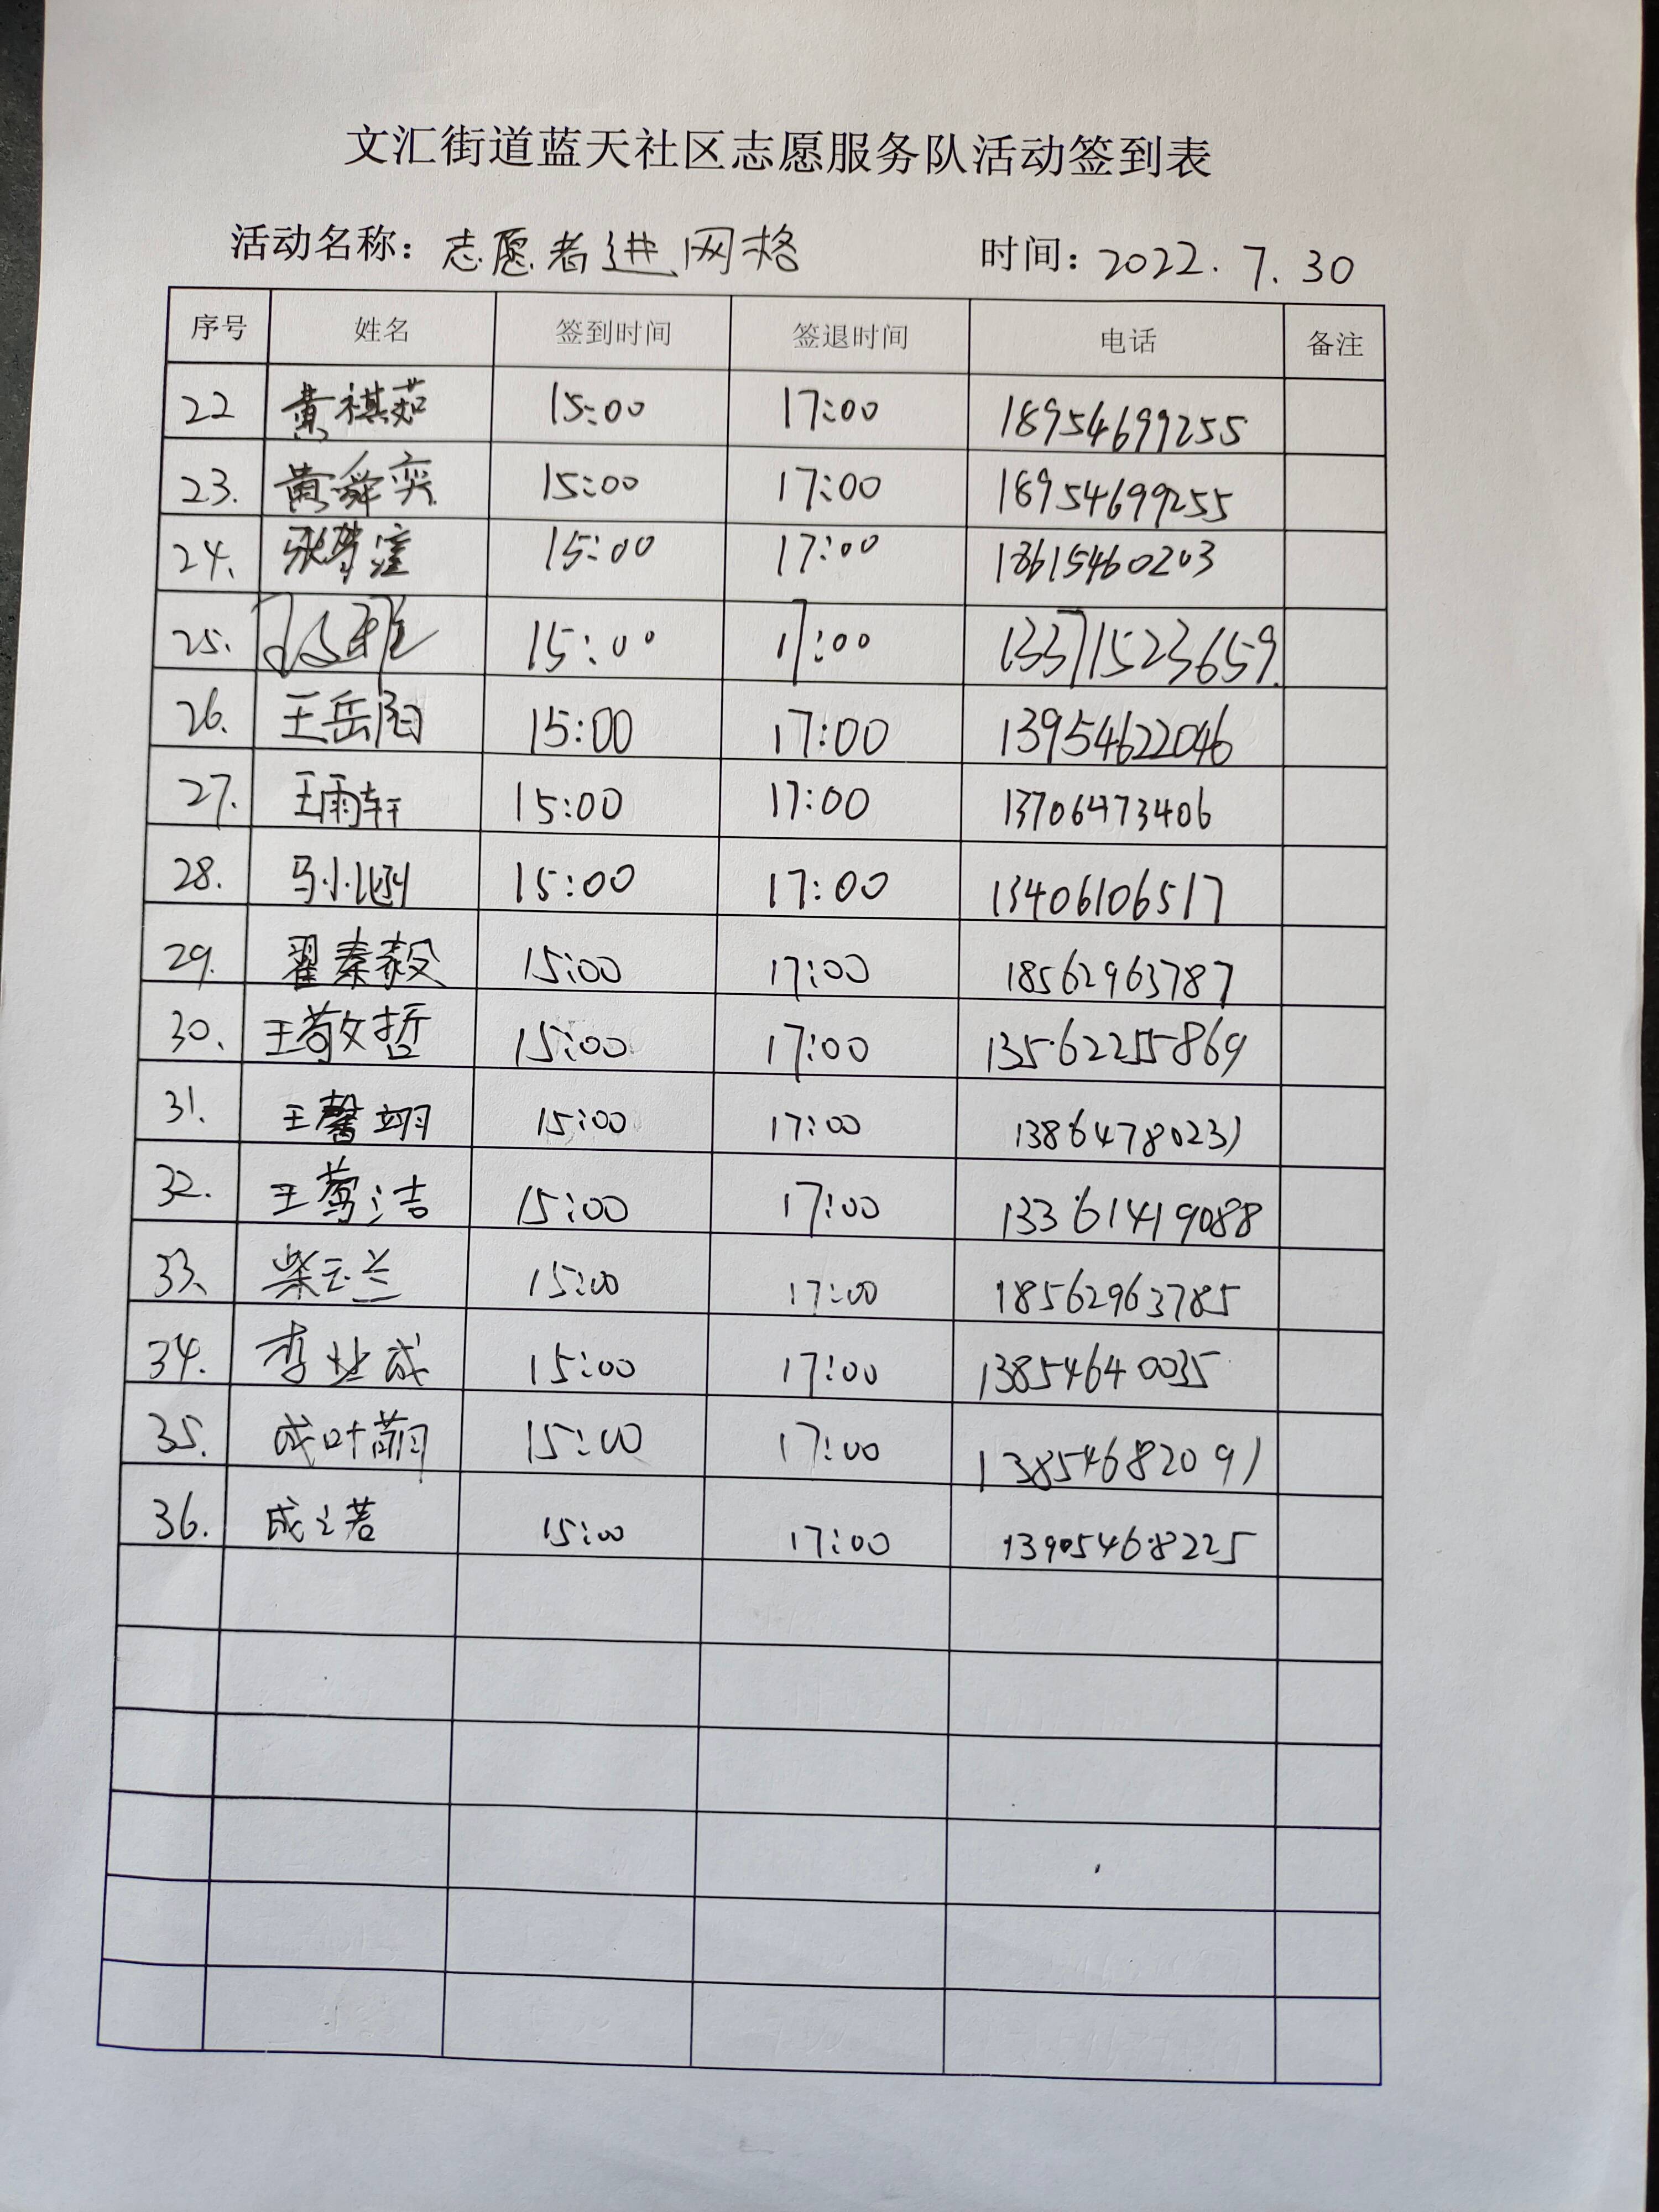 文汇街道蓝天社区志愿服务队活动签到表
活动名称：志愿者进网格 时间：2022.7.30
序号 姓名 签到时间 签退时间 电话 备注
22 黄祺茹 15:00 17:00 18954699255
23. 黄舜奕 15:00 17:00 18954699255
24. 15:00 17:00 18615460203
25. 15:00 17:00 13371523659.
26. 王岳阳 15:00 17:00 13954622046
27. 王雨轩 15:00 17:00 13706473406
28. 马小涵 15:00 17:00 13406106517
29. 翟秦毅 15:00 17:00 18562963787
30. 王敬哲 15:00 17:00 13562255869
31. 王馨翊 15:00 17:00 13864780231
32. 王莺洁 15:00 17:00 13361419088
33. 柴玉兰 15:00 17:00 18562963785
34. 李业成 15:00 17:00 13854640035
35. 成叶萠 15:00 17:00 13854682091
36. 成之若 15:00 17:00 13905468225